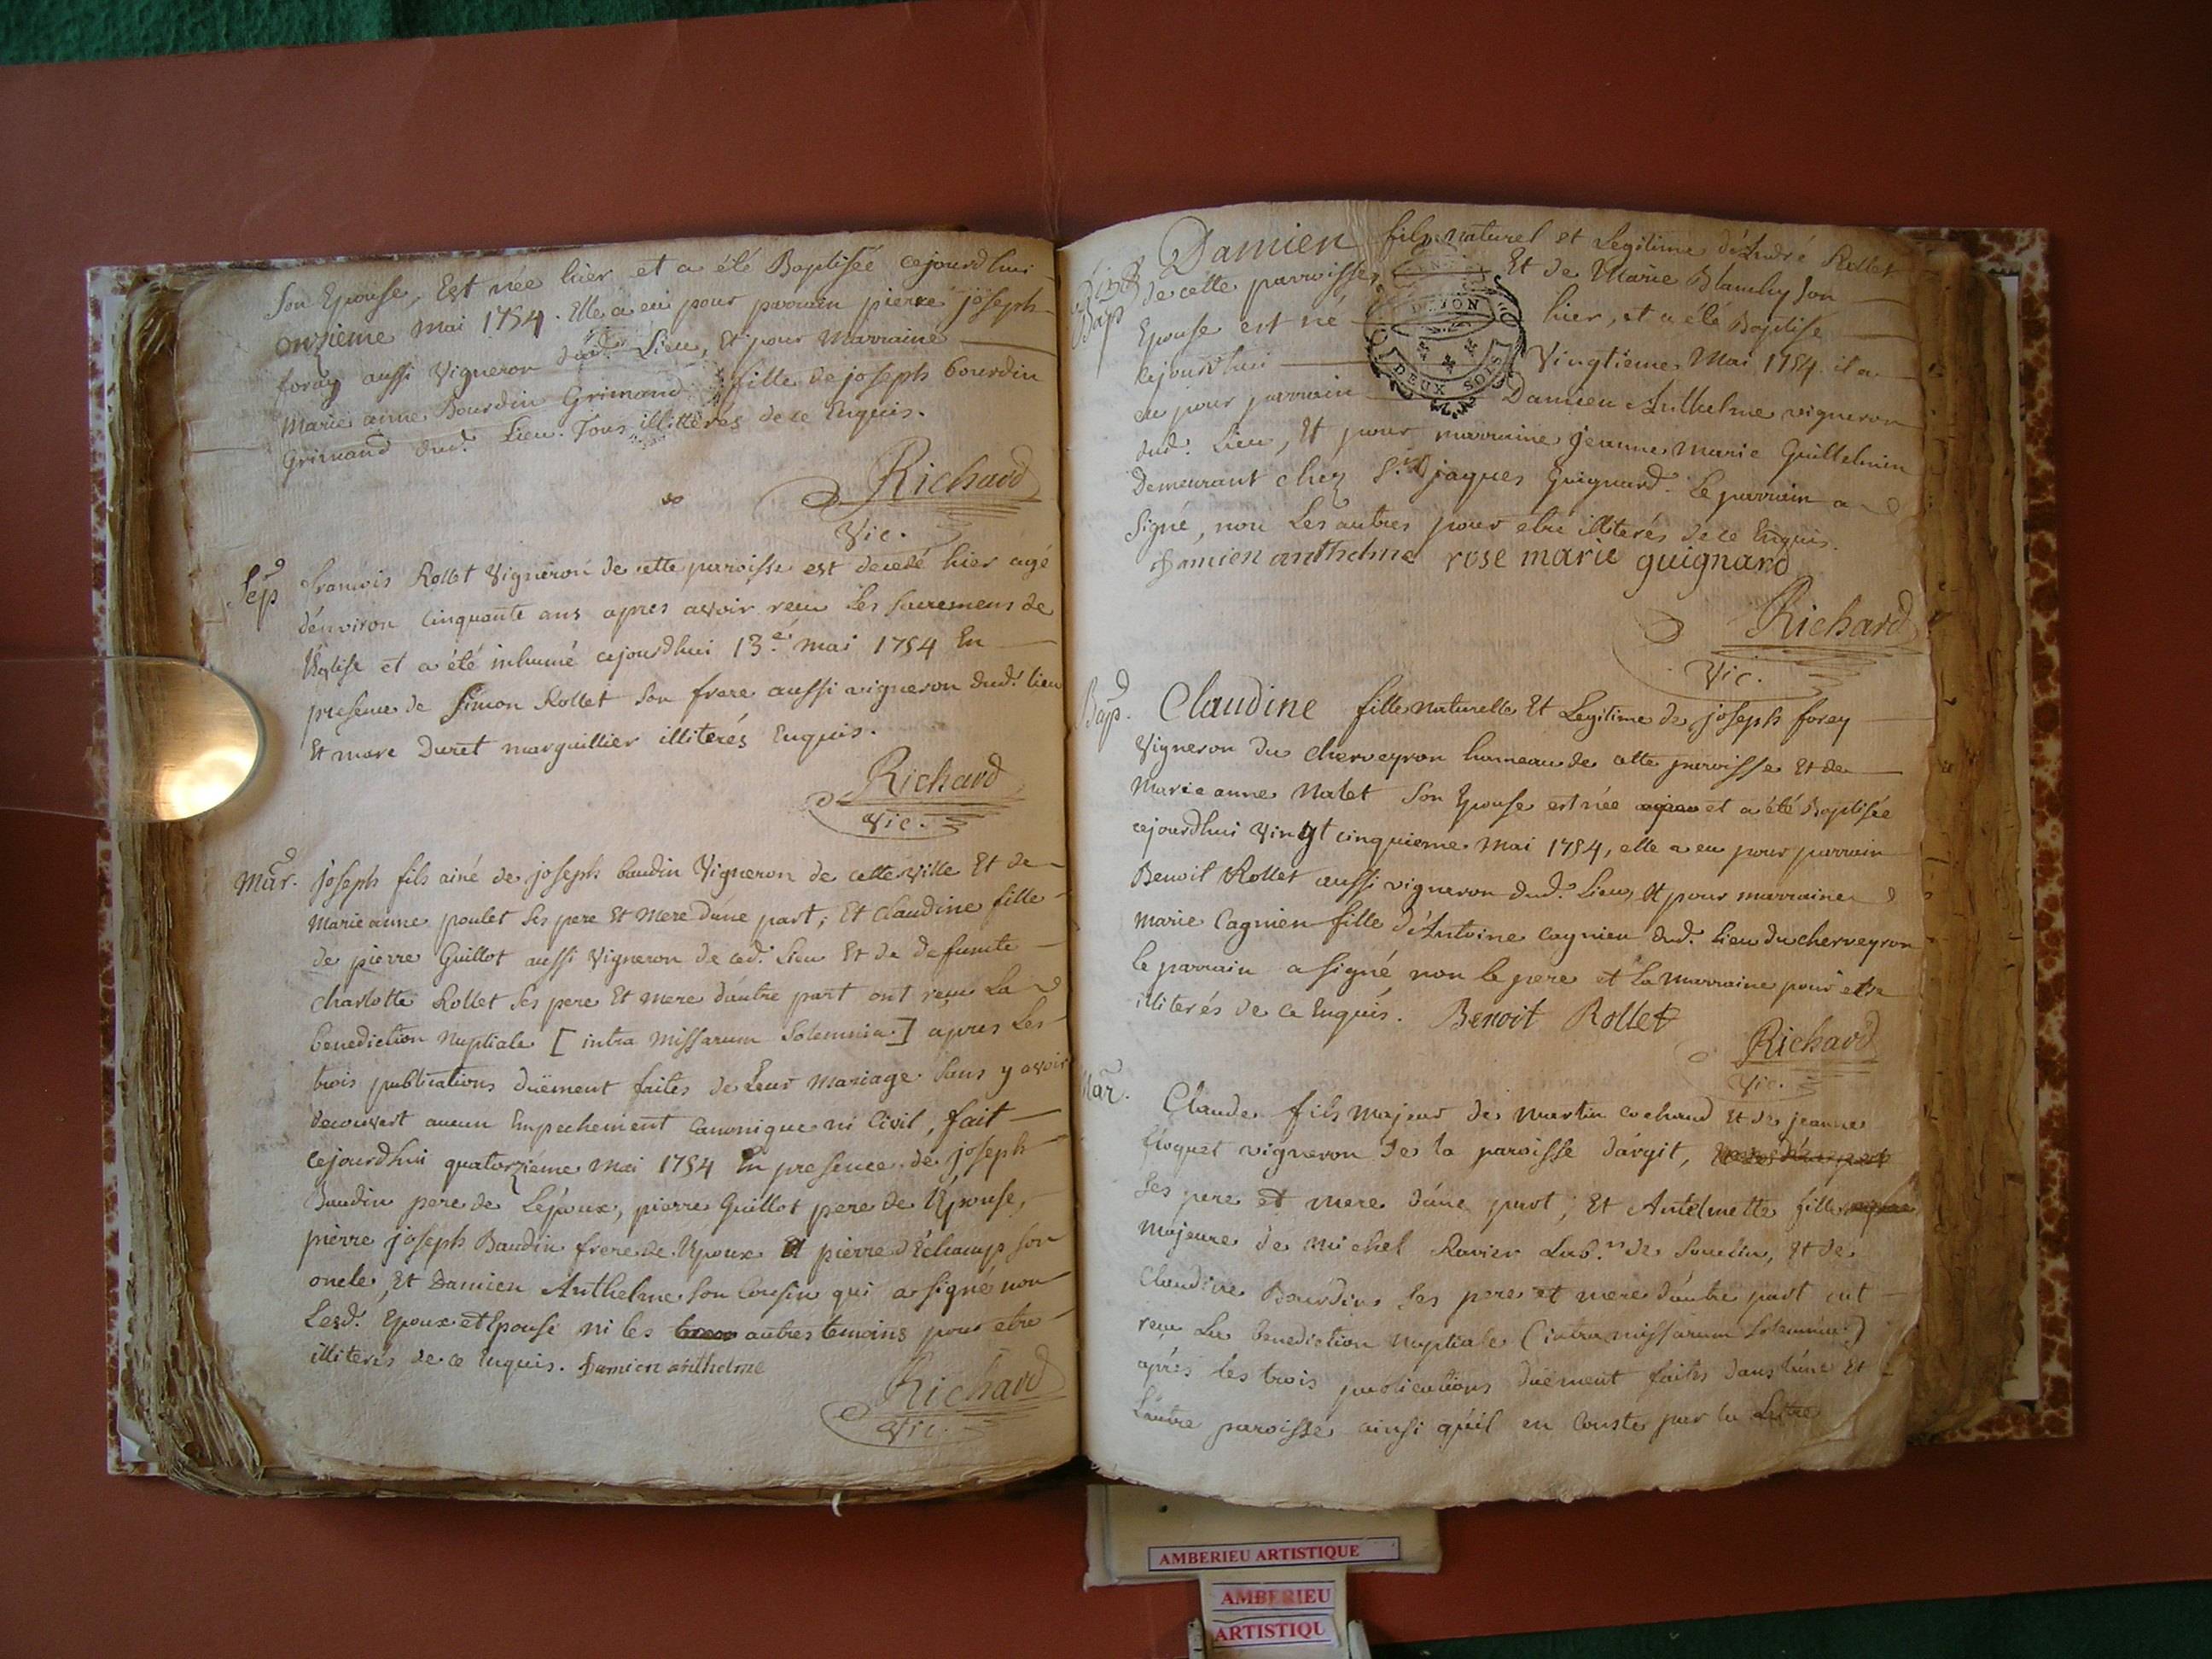 Son Epouse, Est née hier et a été Baptisée cejourdhui
onzieme Mai 1754. Elle a eu pour parrain pierre joseph
foray aussi Vigneron dud. Lieu, Et pour Marraine
Marie anne Bourdin Grimand fille de joseph bourdin
Grimand dud. Lieu. Tous illitterés de ce Enquis.
Richard
Vic.
Sep francois Rollet Vigneron de cette paroisse est decedé hier agé
d'environ cinquante ans apres avoir reçu Les sacremens de
l'Eglise et a été inhumé cejourdhui 13.e mai 1754 En
presence de Simon Rollet son frere aussi vigneron dud. lieu
Et marc Duret marguillier illiterés Enquis.
Richard
Vic.
Mar. joseph fils ainé de joseph baudin Vigneron de cette ville Et de
Marie anne poulet ses pere Et Mere d'une part; Et Claudine fille
de pierre Guillot aussi Vigneron de ced. Lieu Et de defunte
charlotte Rollet ses pere Et mere d'autre part ont reçu La
benediction Nuptiale [intra Missarum Solemnia] apres Les
trois publications düement faites de Leur Mariage sans y avoir
decouvert aucun Empechement Canonique ni Civil, fait
cejourdhui quatorzieme Mai 1754 En presence de joseph
baudin pere de L'epoux, pierre Guillot pere de l'Epouse,
pierre joseph Baudin frere de l'Epoux Et pierre dEchamp son
oncle, Et Damien Anthelme son Cousin qui a signé non
Lesd. Epoux et Epouse ni les autres temoins pour etre
illiterés de ce Enquis. Damien anthelme
Richard
Vic.
Damien fils naturel et Legitime d'André Rollet
Bap de cette parroisse Et de Marie Blanchy son
Epouse est né hier, et a été Baptisé
cejourdhui Vingtieme Mai 1754 il a
eu pour parrain Damien Anthelme vigneron
dud. Lieu, Et pour marraine jeanne Marie Guillelmin
Demeurant chez S.r jaques Guignard. Le parrain a
signé, non Les autres pour etre illiterés de ce Enquis.
Damien anthelme rose marie guignard
DIJON
DEUX SOLS
Richard
Vic.
Bap. Claudine fille naturelle Et Legitime de joseph foray
Vigneron du cherveyron hameau de cette paroisse Et de
Marie anne Nalet son Epouse est née et a été Baptisée
cejourdhui Vingt cinquieme Mai 1754, elle a eu pour parrain
Benoit Rollet aussi vigneron dud. Lieu, Et pour marraine
Marie Cagnien fille d'Antoine Cagnien dud. Lieu du cherveyron
le parrain a signé, non le pere et La Marraine pour etre
illiterés de ce Enquis. Benoit Rollet
Richard
Vic.
Mar. Claude fils majeur de Martin cochand Et de jeanne
floquet vigneron de la paroisse d'argit,
ses pere et mere d'une part; Et Antelmette fille
majeure de Michel Ravier Lab.r de Souclin, Et de
Claudine Bourdin ses pere et mere d'autre part ont
reçu La benediction Nuptiale (intra missarum Solemnia)
après les trois publications düement faites dans l'une Et
L'autre paroisse ainsi qu'il en Conste par la Lettre
AMBERIEU ARTISTIQUE
AMBERIEU
ARTISTIQU